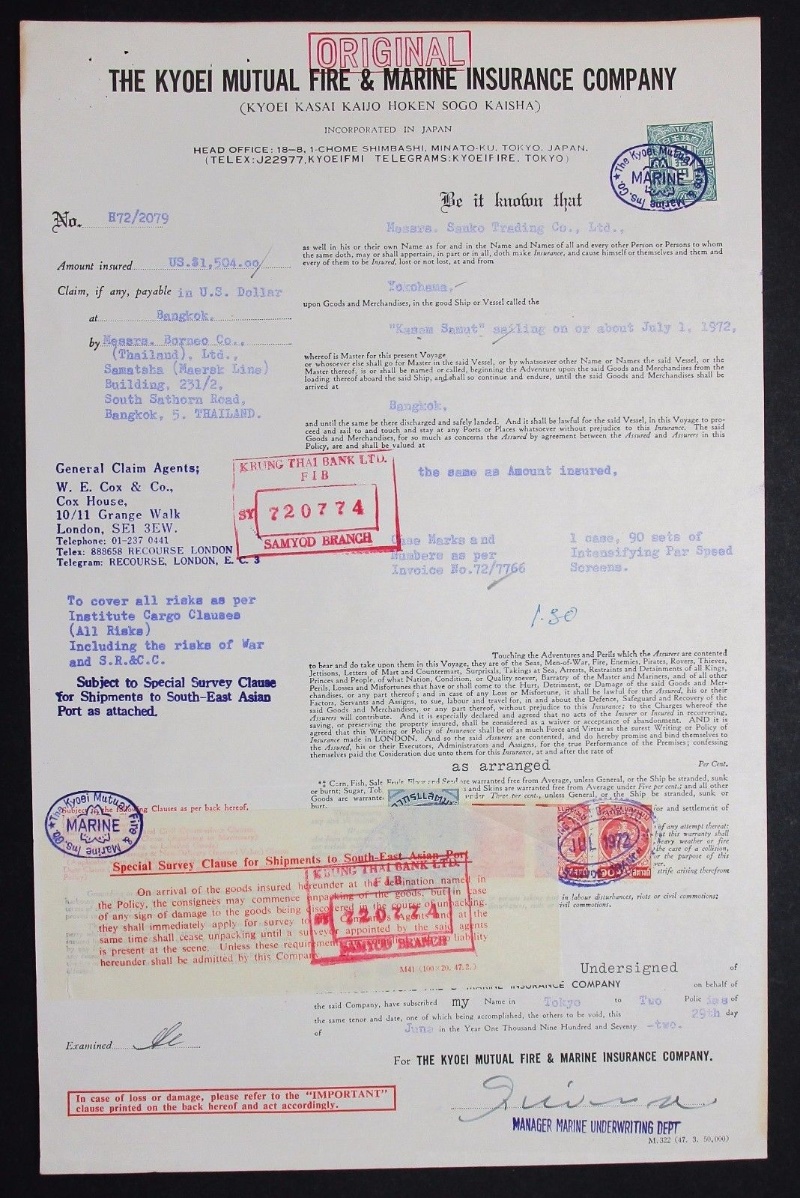 ORIGINAL
THE KYOEI MUTUAL FIRE & MARINE INSURANCE COMPANY
(KYOEI KASAI KAIJO HOKEN SOGO KAISHA)
INCORPORATED IN JAPAN
HEAD OFFICE: 18-8, 1-CHOME SHIMBASHI, MINATO-KU, TOKYO, JAPAN.
(TELEX: J22977, KYOEIFMI TELEGRAMS: KYOEIFIRE, TOKYO)
The Kyoei Mutual Fire & Marine Ins. Co.
MARINE
No. H72/2079
Amount insured US.$1,504.00/
Claim, if any, payable in U.S. Dollar
at Bangkok.
by Messrs. Borneo Co.,
(Thailand), Ltd.,
Samatska (Maersk Line)
Building, 231/2,
South Sathorn Road,
Bangkok, 5. THAILAND.
General Claim Agents;
W. E. Cox & Co.,
Cox House,
10/11 Grange Walk
London, SE1 3EW.
Telephone: 01-237 0441
Telex: 888658 RECOURSE LONDON
Telegram: RECOURSE, LONDON, E. C. 3
To cover all risks as per
Institute Cargo Clauses
(All Risks)
Including the risks of War
and S.R.&C.C.
Subject to Special Survey Clause
for Shipments to South-East Asian
Port as attached.
Be it known that
Messrs. Sanko Trading Co., Ltd.,
as well in his or their own Name as for and in the Name and Names of all and every other Person or Persons to whom
the same doth, may or shall appertain, in part or in all, doth make Insurance, and cause himself or themselves and them and
every of them to be Insured, lost or not lost, at and from
Yokohama,
upon Goods and Merchandises, in the good Ship or Vessel called the
"Kasem Samut" sailing on or about July 1, 1972,
whereof is Master for this present Voyage
or whosoever else shall go for Master in the said Vessel, or by whatsoever other Name or Names the said Vessel, or the
Master thereof, is or shall be named or called, beginning the Adventure upon the said Goods and Merchandises from the
loading thereof aboard the said Ship, and shall so continue and endure, until the said Goods and Merchandises shall be
arrived at
Bangkok,
and until the same be there discharged and safely landed. And it shall be lawful for the said Vessel, in this Voyage to pro-
ceed and sail to and touch and stay at any Ports or Places whatsoever without prejudice to this Insurance. The said
Goods and Merchandises, for so much as concerns the Assured by agreement between the Assured and Assurers in this
Policy, are and shall be valued at
the same as Amount insured,
KRUNG THAI BANK LTD.
F I B
SY 720774
SAMYOD BRANCH
Case Marks and
Numbers as per
Invoice No.72/7766
1 case, 90 sets of
Intensifying Par Speed
Screens.
1.30
Touching the Adventures and Perils which the Assurers are contented
to bear and do take upon them in this Voyage, they are of the Seas, Men-of-War, Fire, Enemies, Pirates, Rovers, Thieves,
Jettisons, Letters of Mart and Countermart, Surprisals, Takings at Sea, Arrests, Restraints and Detainments of all Kings,
Princes and People, of what Nation, Condition, or Quality soever, Barratry of the Master and Mariners, and of all other
Perils, Losses and Misfortunes that have or shall come to the Hurt, Detriment, or Damage of the said Goods and Mer-
chandises, or any part thereof; and in case of any Loss or Misfortune, it shall be lawful for the Assured, his or their
Factors, Servants and Assigns, to sue, labour and travel for, in and about the Defence, Safeguard and Recovery of the
said Goods and Merchandises, or any part thereof, without prejudice to this Insurance; to the Charges whereof the
Assurers will contribute. And it is especially declared and agreed that no acts of the Insurer or Insured in recovering,
saving, or preserving the property insured, shall be considered as a waiver or acceptance of abandonment. AND it is
agreed that this Writing or Policy of Insurance shall be of as much Force and Virtue as the surest Writing or Policy of
Insurance made in LONDON. And so the said Assurers are contented, and do hereby promise and bind themselves to
the Assured, his or their Executors, Administrators and Assigns, for the true Performance of the Premises; confessing
themselves paid the Cosideration due unto them for this Insurance, at and after the rate of
as arranged Per Cent.
are warranted free from Average, unless General, or the Ship be stranded,
and Skins are warranted free from Average under Five per cent.; and all other
Three per cent.
and settlement of
of any attempt threat:
but this warranty shall
heavy weather or fire
the case of a collision,
for the purpose of this
strife arising therefrom
in labour disturbances, riots or civil commotions;
civil commotions.
Clauses as per back hereof.
The Kyoei Mutual Fire & Marine Ins. Co.
MARINE
JUL 1972
Special Survey Clause for Shipments to South-East Asian Port
On arrival of the goods insured hereunder at the destination named in
the Policy, the consignees may commence unpacking of the goods, but in case
of any sign of damage to the goods being discovered in the course of unpacking,
they shall immediately apply for survey to and at the
same time shall cease unpacking until a surveyor appointed by the said agents
is present at the scene. Unless these liability
hereunder shall be admitted by this Company
M41 (100×20. 47.2.)
KRUNG THAI BANK LTD.
F I B
SY 720774
SAMYOD BRANCH
Undersigned of
MARINE INSURANCE COMPANY on behalf of
the said Company, have subscribed my Name in Tokyo to Two Policies of
the same tenor and date, one of which being accomplished, the others to be void, this 29th day
of June in the Year One Thousand Nine Hundred and Seventy -two.
Examined
For THE KYOEI MUTUAL FIRE & MARINE INSURANCE COMPANY.
In case of loss or damage, please refer to the "IMPORTANT"
clause printed on the back hereof and act accordingly.
MANAGER MARINE UNDERWRITING DEPT
M.322 (47. 3. 50,000)